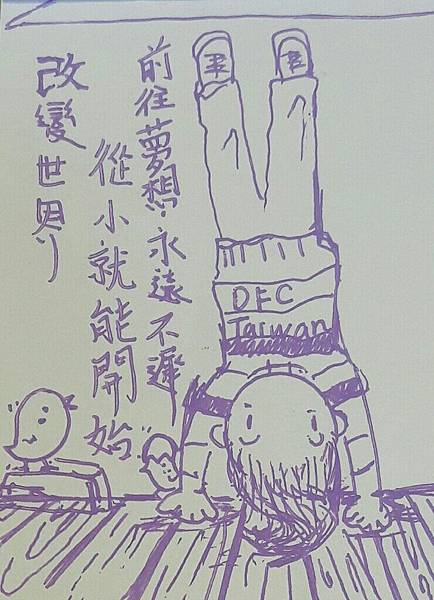 前往夢想，永遠不遲
從小就能開始
改變世界
DFC
Taiwan